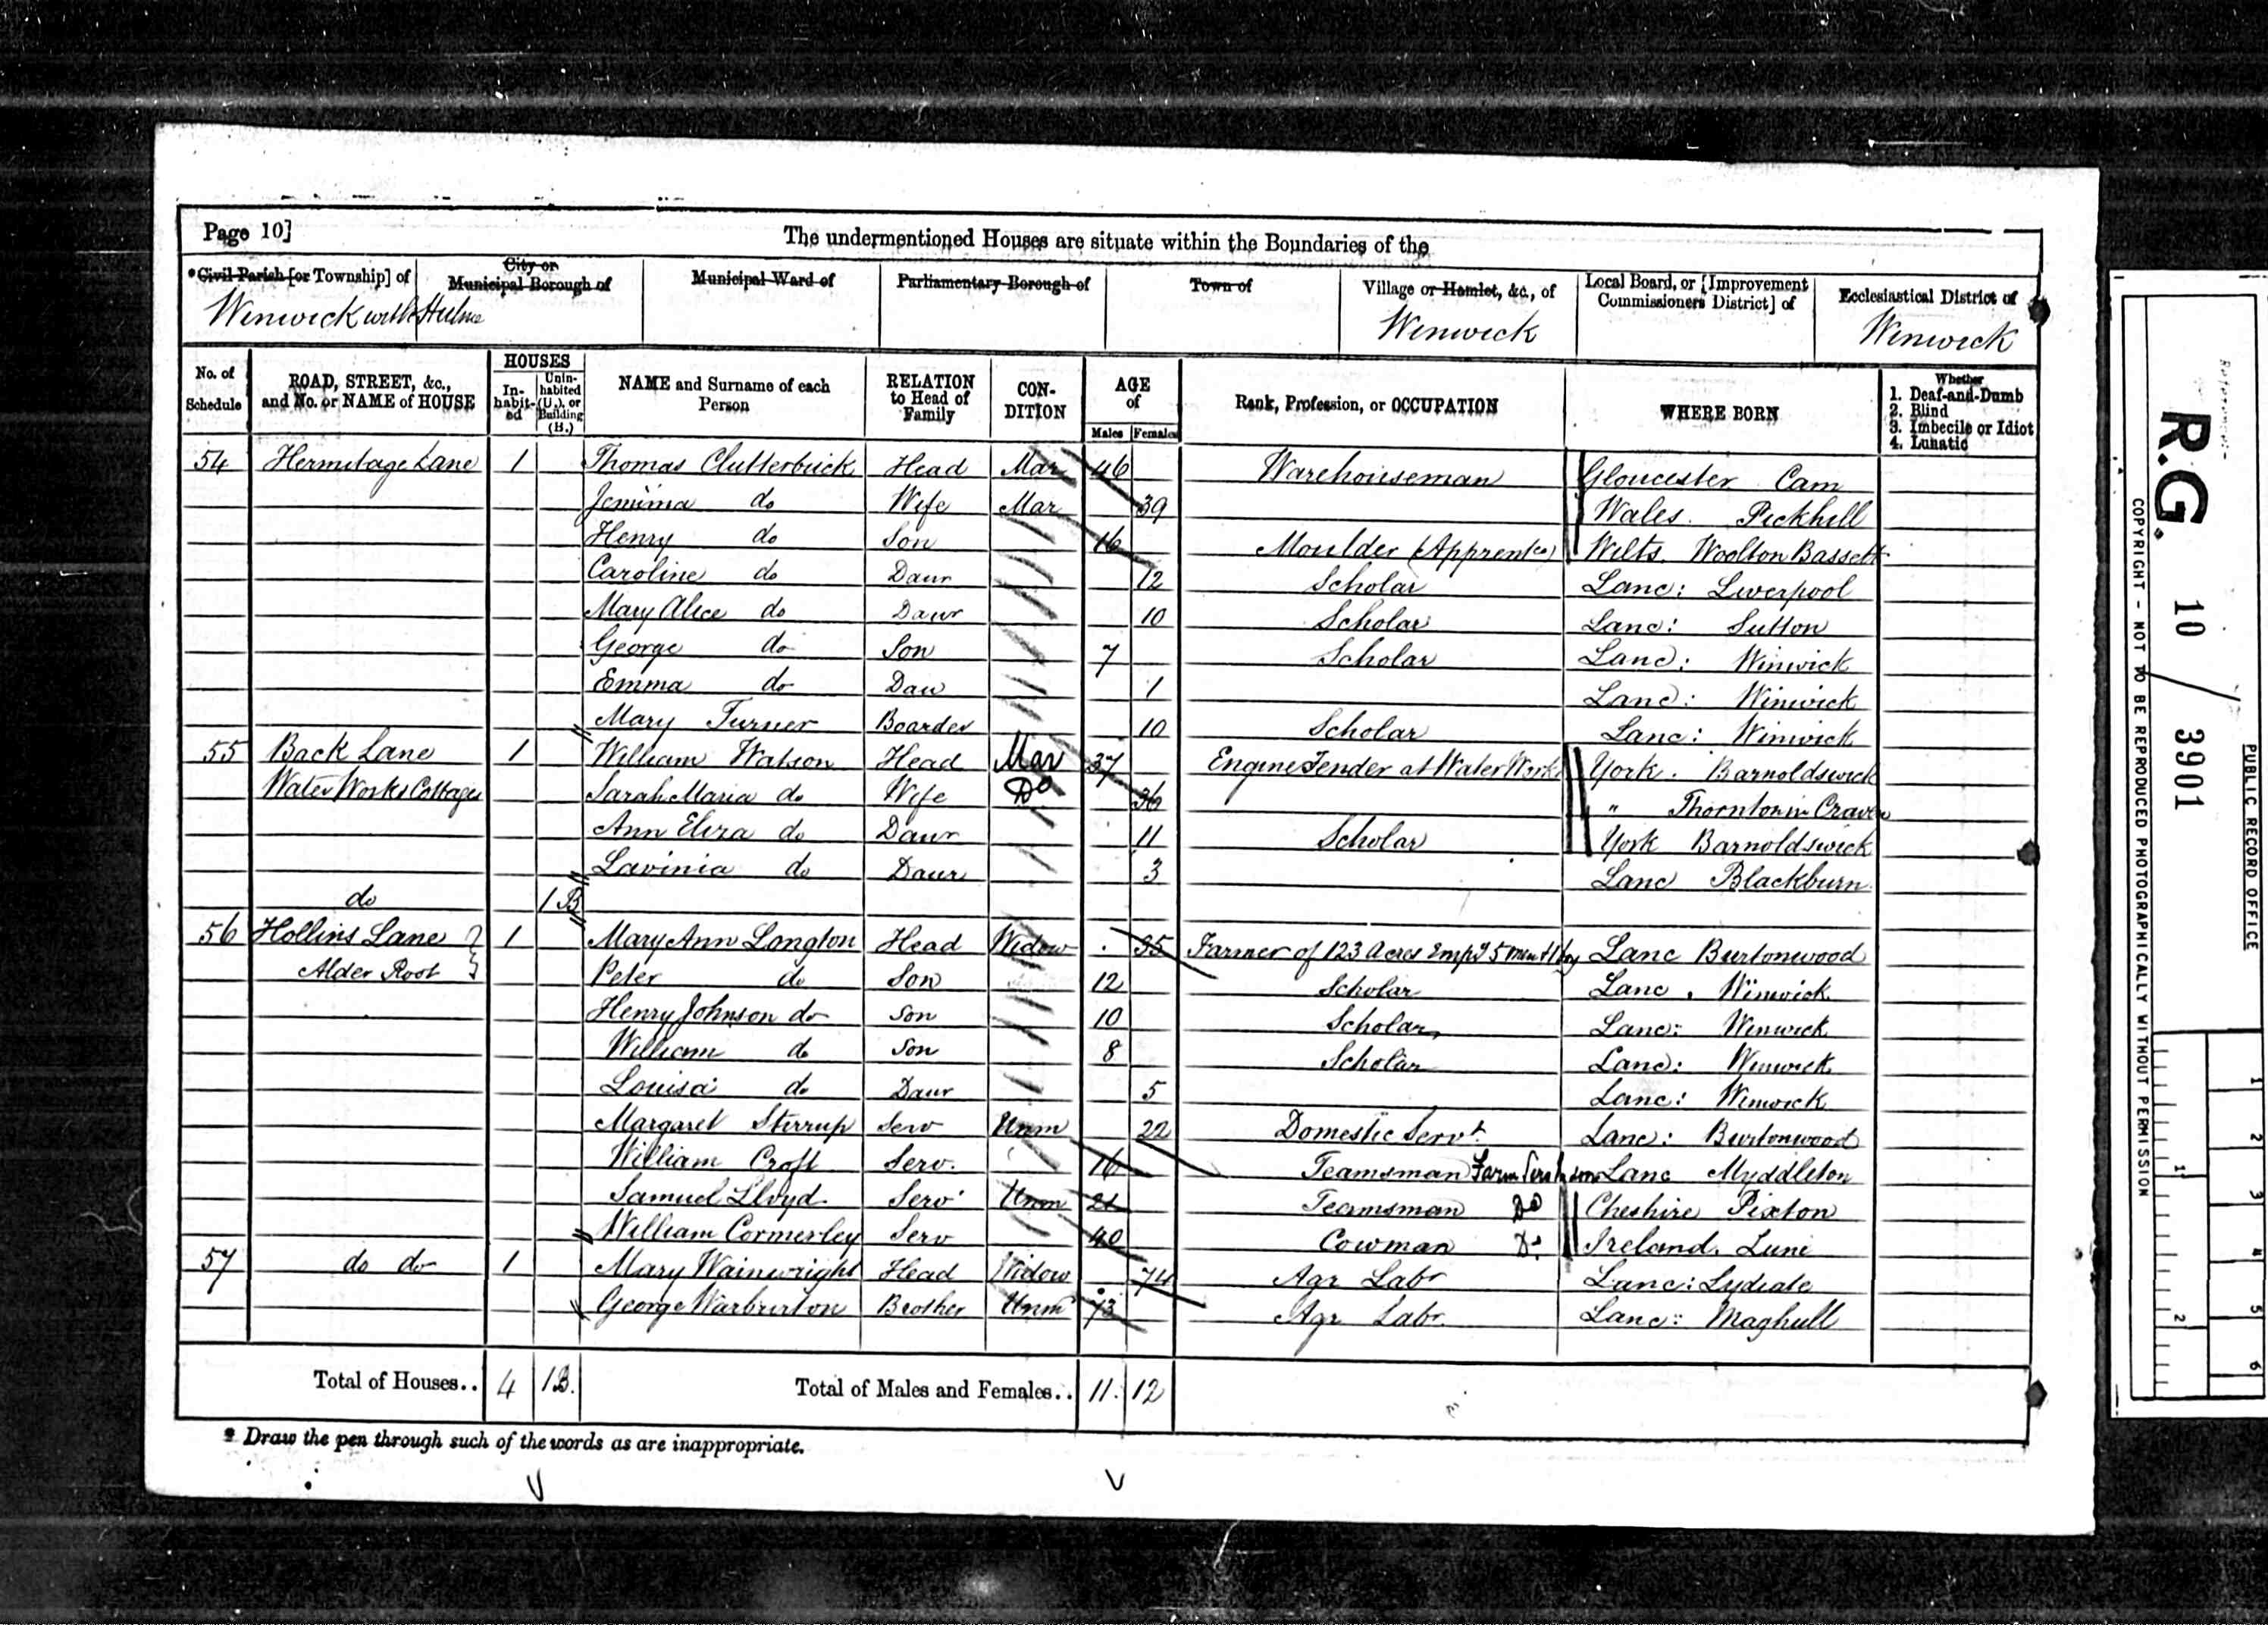 Page 10]
The undermentioned Houses are situate within the Boundaries of the
*Civil Parish [or Township] of
City or Municipal Borough of
Municipal Ward of
Parliamentary Borough of
Town of
Village or Hamlet, &c., of
Local Board, or [Improvement Commissioners District] of
Ecclesiastical District of
Winwick with Hulme
Winwick
Winwick
No. of Schedule
ROAD, STREET, &c., and No. or NAME of HOUSE
HOUSES
In-habit-ed
Unin-habited (U.), or Building (B.)
NAME and Surname of each Person
RELATION to Head of Family
CON-DITION
AGE of
Males
Females
Rank, Profession, or OCCUPATION
WHERE BORN
Whether
1. Deaf-and-Dumb
2. Blind
3. Imbecile or Idiot
4. Lunatic
54 Hermitage Lane 1 Thomas Clutterbuck Head Mar 46 Warehouseman Gloucester Cam
Jemima do Wife Mar 39 Wales. Pickhill
Henry do Son 16 Moulder (Apprentce) Wilts. Woolton Bassett
Caroline do Daur 12 Scholar Lanc: Liverpool
Mary Alice do Daur 10 Scholar Lanc: Sutton
George do Son 7 Scholar Lanc: Winwick
Emma do Dau 1 Lanc: Winwick
Mary Turner Boarder 10 Scholar Lanc: Winwick
55 Back Lane 1 William Watson Head Mar 37 Engine Tender at Water Works York. Barnoldswick
Water Works Cottages Sarah Maria do Wife Do 36 " Thornton in Craven
Ann Eliza do Daur 11 Scholar York Barnoldswick
Lavinia do Daur 3 Lanc Blackburn
do 1 B
56 Hollins Lane 1 Mary Ann Longton Head Widow 35 Farmer of 123 Acres Empg 5 men & 1 boy Lanc Burtonwood
Alder Root Peter do Son 12 Scholar Lanc. Winwick
Henry Johnson do Son 10 Scholar Lanc: Winwick
William do Son 8 Scholar Lanc: Winwick
Louisa do Daur 5 Lanc: Winwick
Margaret Stirrup Serv Unm 22 Domestic Servt. Lanc: Burtonwood
William Croft Serv. 16 Teamsman Farm Serv Lanc Myddleton
Samuel Lloyd Serv Unm 21 Teamsman Do Cheshire Pixton
William Cormerley Serv 40 Cowman Do. Ireland.
57 do do 1 Mary Wainwright Head Widow 74 Agr Labr Lanc: Lydiate
George Warburton Brother Unm 73 Agr Labr Lanc: Maghull
Total of Houses.. 4 1B. Total of Males and Females.. 11. 12
* Draw the pen through such of the words as are inappropriate.
R.G. 10 / 3901
PUBLIC RECORD OFFICE
COPYRIGHT - NOT TO BE REPRODUCED PHOTOGRAPHICALLY WITHOUT PERMISSION
1
2
3
4
5
6
1
2